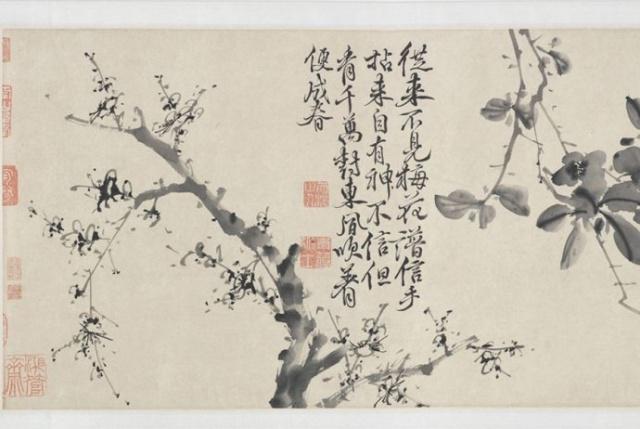 從來不見梅花譜信手
拈來自有神不信但
看千萬樹東風吹著
便成春